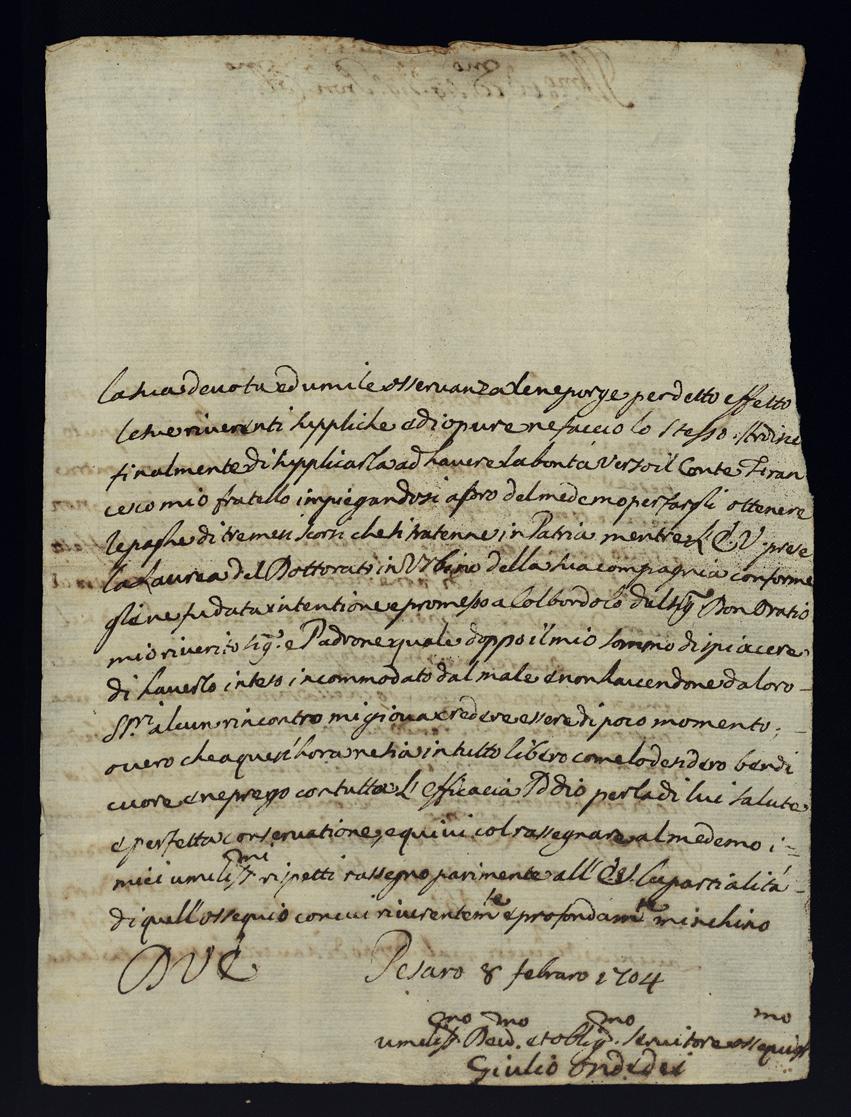 la sua devota ed umile osservanza le ne porge per detto effetto
le sue riverenti suppliche ed io pure ne faccio lo stesso. Ardisco
finalmente di supplicarla ad havere la bontà verso il Conte Fran
cesco mio fratello impiegandosi a pro del medemo per fargli ottenere
le paghe di tre mesi scorsi che si tratenne in Patria mentre l'E. V. prese
la Laurea del Dottorato in Urbino della sua compagnia conforme
gliene fu data intentione e promessa a Colbordolo dal Sig.r Don Oratio
mio riverito Sig.e e Padrone quale doppo il mio sommo dispiacere
di haverlo inteso incommodato dal male e non havendone da loro
SS.ri alcun rincontro mi giova credere essere di poco momento,
overo che a quest'hora ne sia in tutto libero come lo desidero ben di
cuore e ne prego con tutta l'efficacia Iddio per la di lui salute
e perfetta conservatione, e quivi col rassegnare al medemo i
miei umiliss.mi rispetti rassegno parimente all' E. V. la parzialità
di quell'ossequio con cui riverentem.te e profondam.te m'inchino
D V E Pesaro 8 febraro 1704
umiliss.mo Dev.mo et oblig.mo servitore ossequios.mo
Giulio Ondedei